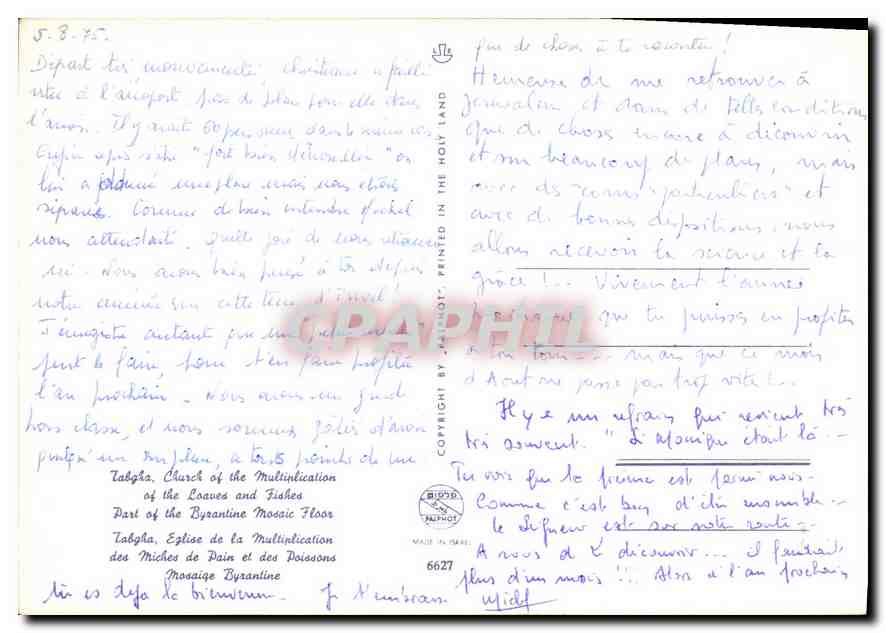 5-8-75.
Départ très mouvementé. Christiane a failli
rester à l'aéroport, pas de place pour elle dans
l'avion. Il y avait 60 personnes dans le même cas.
Enfin après s'être "fort bien débrouillée" on
lui a donné une place mais nous étions
séparés. Corinne
nous attendait. Quelle joie de nous retrouver
ici. Nous avons bien pensé à toi depuis
notre arrivée sur cette terre d'Israël!
J'enregistre autant que ma
peut le faire, pour t'en faire profiter
l'an prochain. Nous avons un guide
hors classe, et nous sommes gâtés d'avoir
puisqu'un
Tabgha, Church of the Multiplication
of the Loaves and Fishes
Part of the Byzantine Mosaic Floor
Tabgha, Eglise de la Multiplication
des Miches de Pain et des Poissons
Mosaiqe Byzantine
tu es déjà la bienvenue. Je t'embrasse
COPYRIGHT BY „PALPHOT", PRINTED IN THE HOLY LAND
PALPHOT
MADE IN ISRAEL
6627
CPAPHIL
que de choses à te raconter!
Heureuse de me retrouver à
Jerusalem et dans de telles conditions
que de choses encore à découvrir
et sur beaucoup de plans, mais
avec des "cours particuliers" et
avec de bonnes dispositions, nous
allons recevoir la science et la
grâce!... Vivement l'année
prochaine que tu puisses en profiter
à ton tour... mais que ce mois
d'Août ne passe pas trop vite!...
Il y a un refrain qui revient très
très souvent. "Si Monique était là..
Tu vois que la pensée est parmi nous.
Comme c'est bon d'être ensemble.
le Seigneur est sur notre route.
A nous de le découvrir... il faudrait
plus d'un mois!!! Alors à l'an prochain